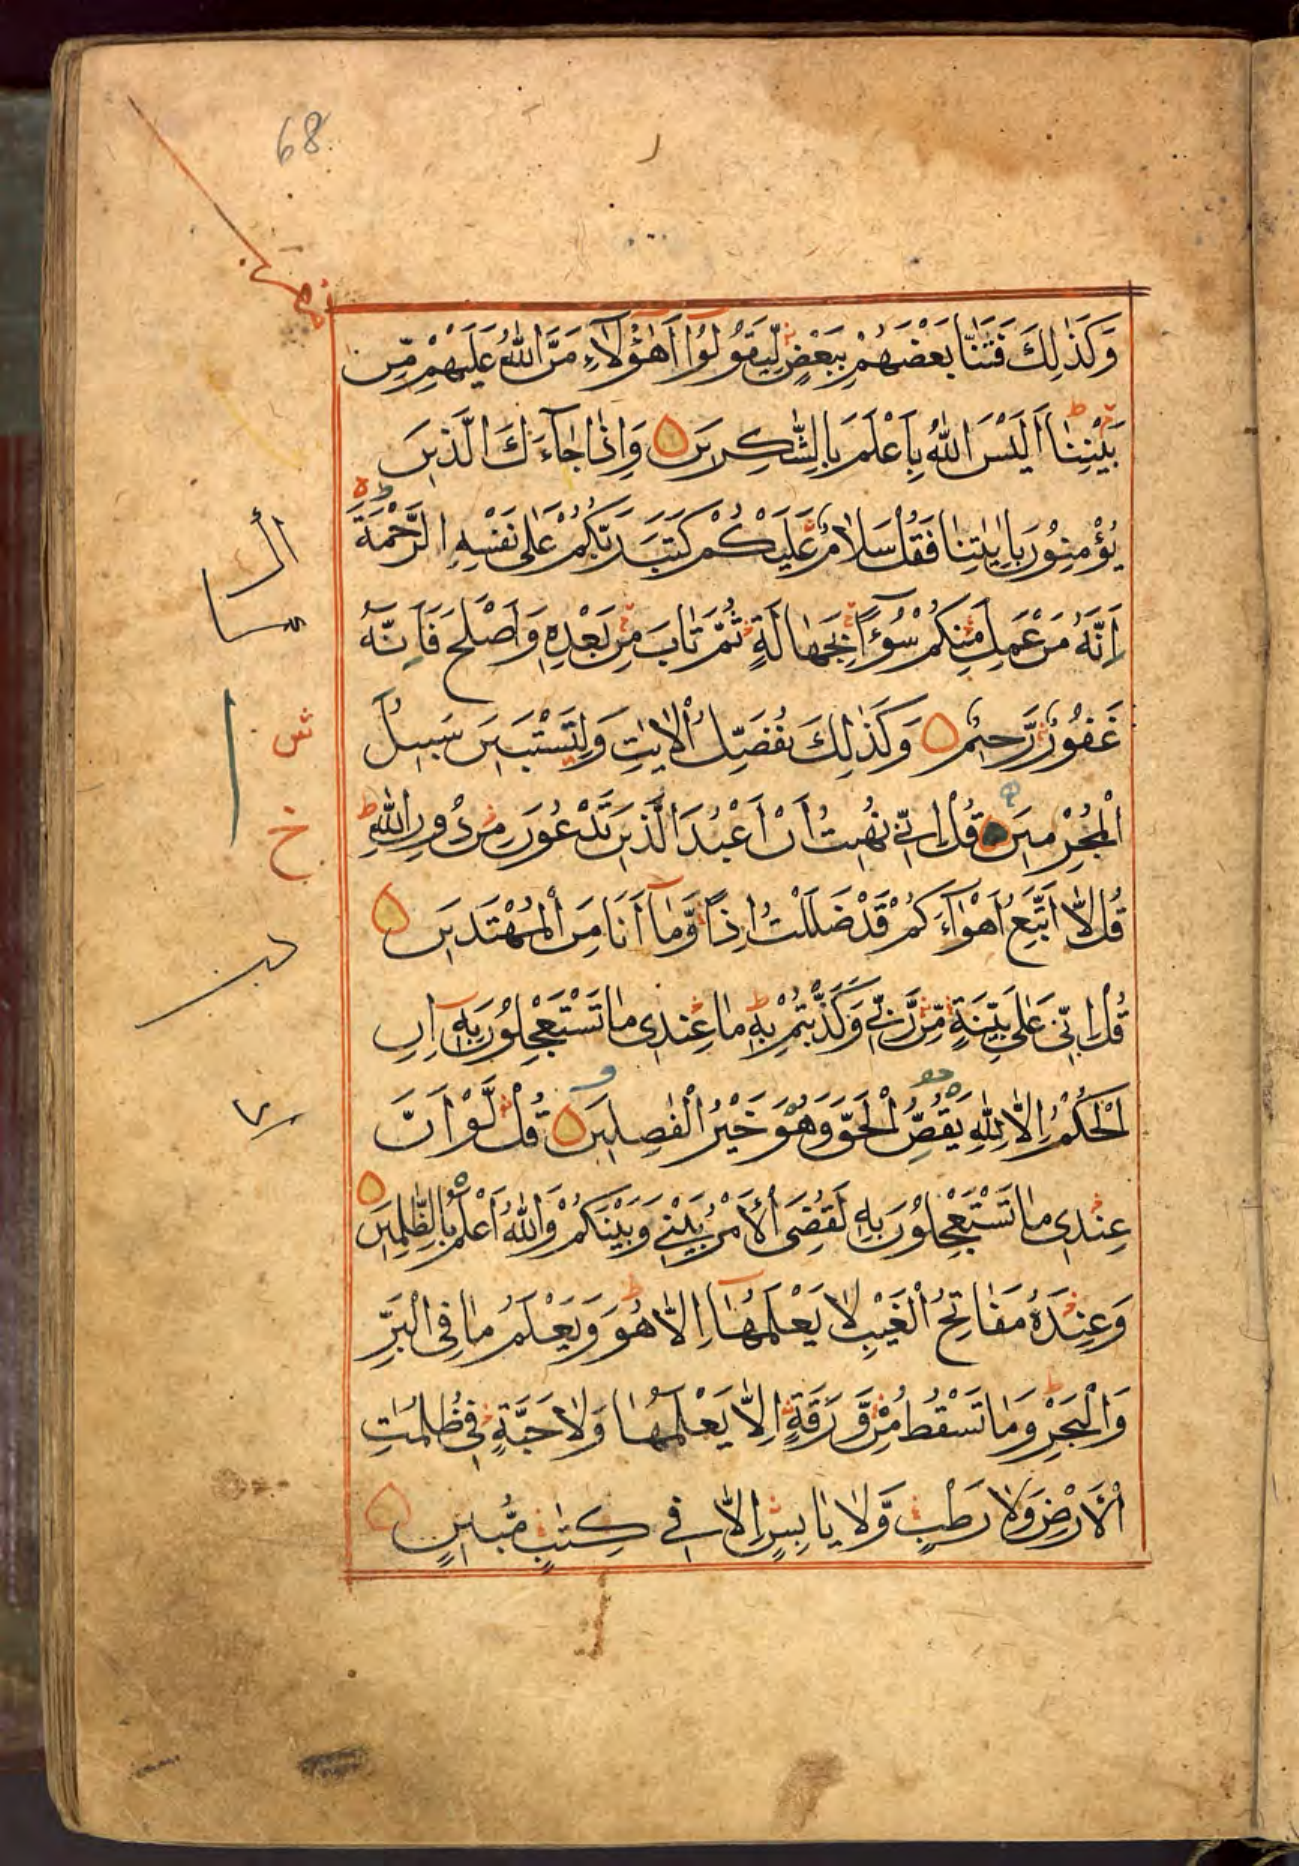 68
وَكَذٰلِكَ فَتَنَّا بَعْضَهُمْ بِبَعْضٍ لِّيَقُولُوٓا اَهٰٓؤُلَآءِ مَنَّ اللّٰهُ عَلَيْهِمْ مِّنْ
بَيْنِنَا اَلَيْسَ اللّٰهُ بِاَعْلَمَ بِالشّٰكِرِيْنَ وَاِذَا جَآءَكَ الَّذِيْنَ
يُؤْمِنُوْنَ بِاٰيٰتِنَا فَقُلْ سَلَامٌ عَلَيْكُمْ كَتَبَ رَبُّكُمْ عَلٰى نَفْسِهِ الرَّحْمَةَ
اِنَّهٗ مَنْ عَمِلَ مِنْكُمْ سُوْٓءًا بِجَهَالَةٍ ثُمَّ تَابَ مِنْ بَعْدِهٖ وَاَصْلَحَ فَاِنَّهٗ
غَفُوْرٌ رَّحِيْمٌ وَكَذٰلِكَ نُفَصِّلُ الْاٰيٰتِ وَلِتَسْتَبِيْنَ سَبِيْلُ
الْمُجْرِمِيْنَ قُلْ اِنِّيْ نُهِيْتُ اَنْ اَعْبُدَ الَّذِيْنَ تَدْعُوْنَ مِنْ دُوْنِ اللّٰهِ
قُلْ لَّا اَتَّبِعُ اَهْوَآءَكُمْ قَدْ ضَلَلْتُ اِذًا وَّمَآ اَنَا مِنَ الْمُهْتَدِيْنَ
قُلْ اِنِّيْ عَلٰى بَيِّنَةٍ مِّنْ رَّبِّيْ وَكَذَّبْتُمْ بِهٖ مَا عِنْدِيْ مَا تَسْتَعْجِلُوْنَ بِهٖ اِنِ
الْحُكْمُ اِلَّا لِلّٰهِ يَقُصُّ الْحَقَّ وَهُوَ خَيْرُ الْفٰصِلِيْنَ قُلْ لَّوْ اَنَّ
عِنْدِيْ مَا تَسْتَعْجِلُوْنَ بِهٖ لَقُضِيَ الْاَمْرُ بَيْنِيْ وَبَيْنَكُمْ وَاللّٰهُ اَعْلَمُ بِالظّٰلِمِيْنَ
وَعِنْدَهٗ مَفَاتِحُ الْغَيْبِ لَا يَعْلَمُهَآ اِلَّا هُوَ وَيَعْلَمُ مَا فِى الْبَرِّ
وَالْبَحْرِ وَمَا تَسْقُطُ مِنْ وَّرَقَةٍ اِلَّا يَعْلَمُهَا وَلَا حَبَّةٍ فِيْ ظُلُمٰتِ
الْاَرْضِ وَلَا رَطْبٍ وَّلَا يَابِسٍ اِلَّا فِيْ كِتٰبٍ مُّبِيْنٍ